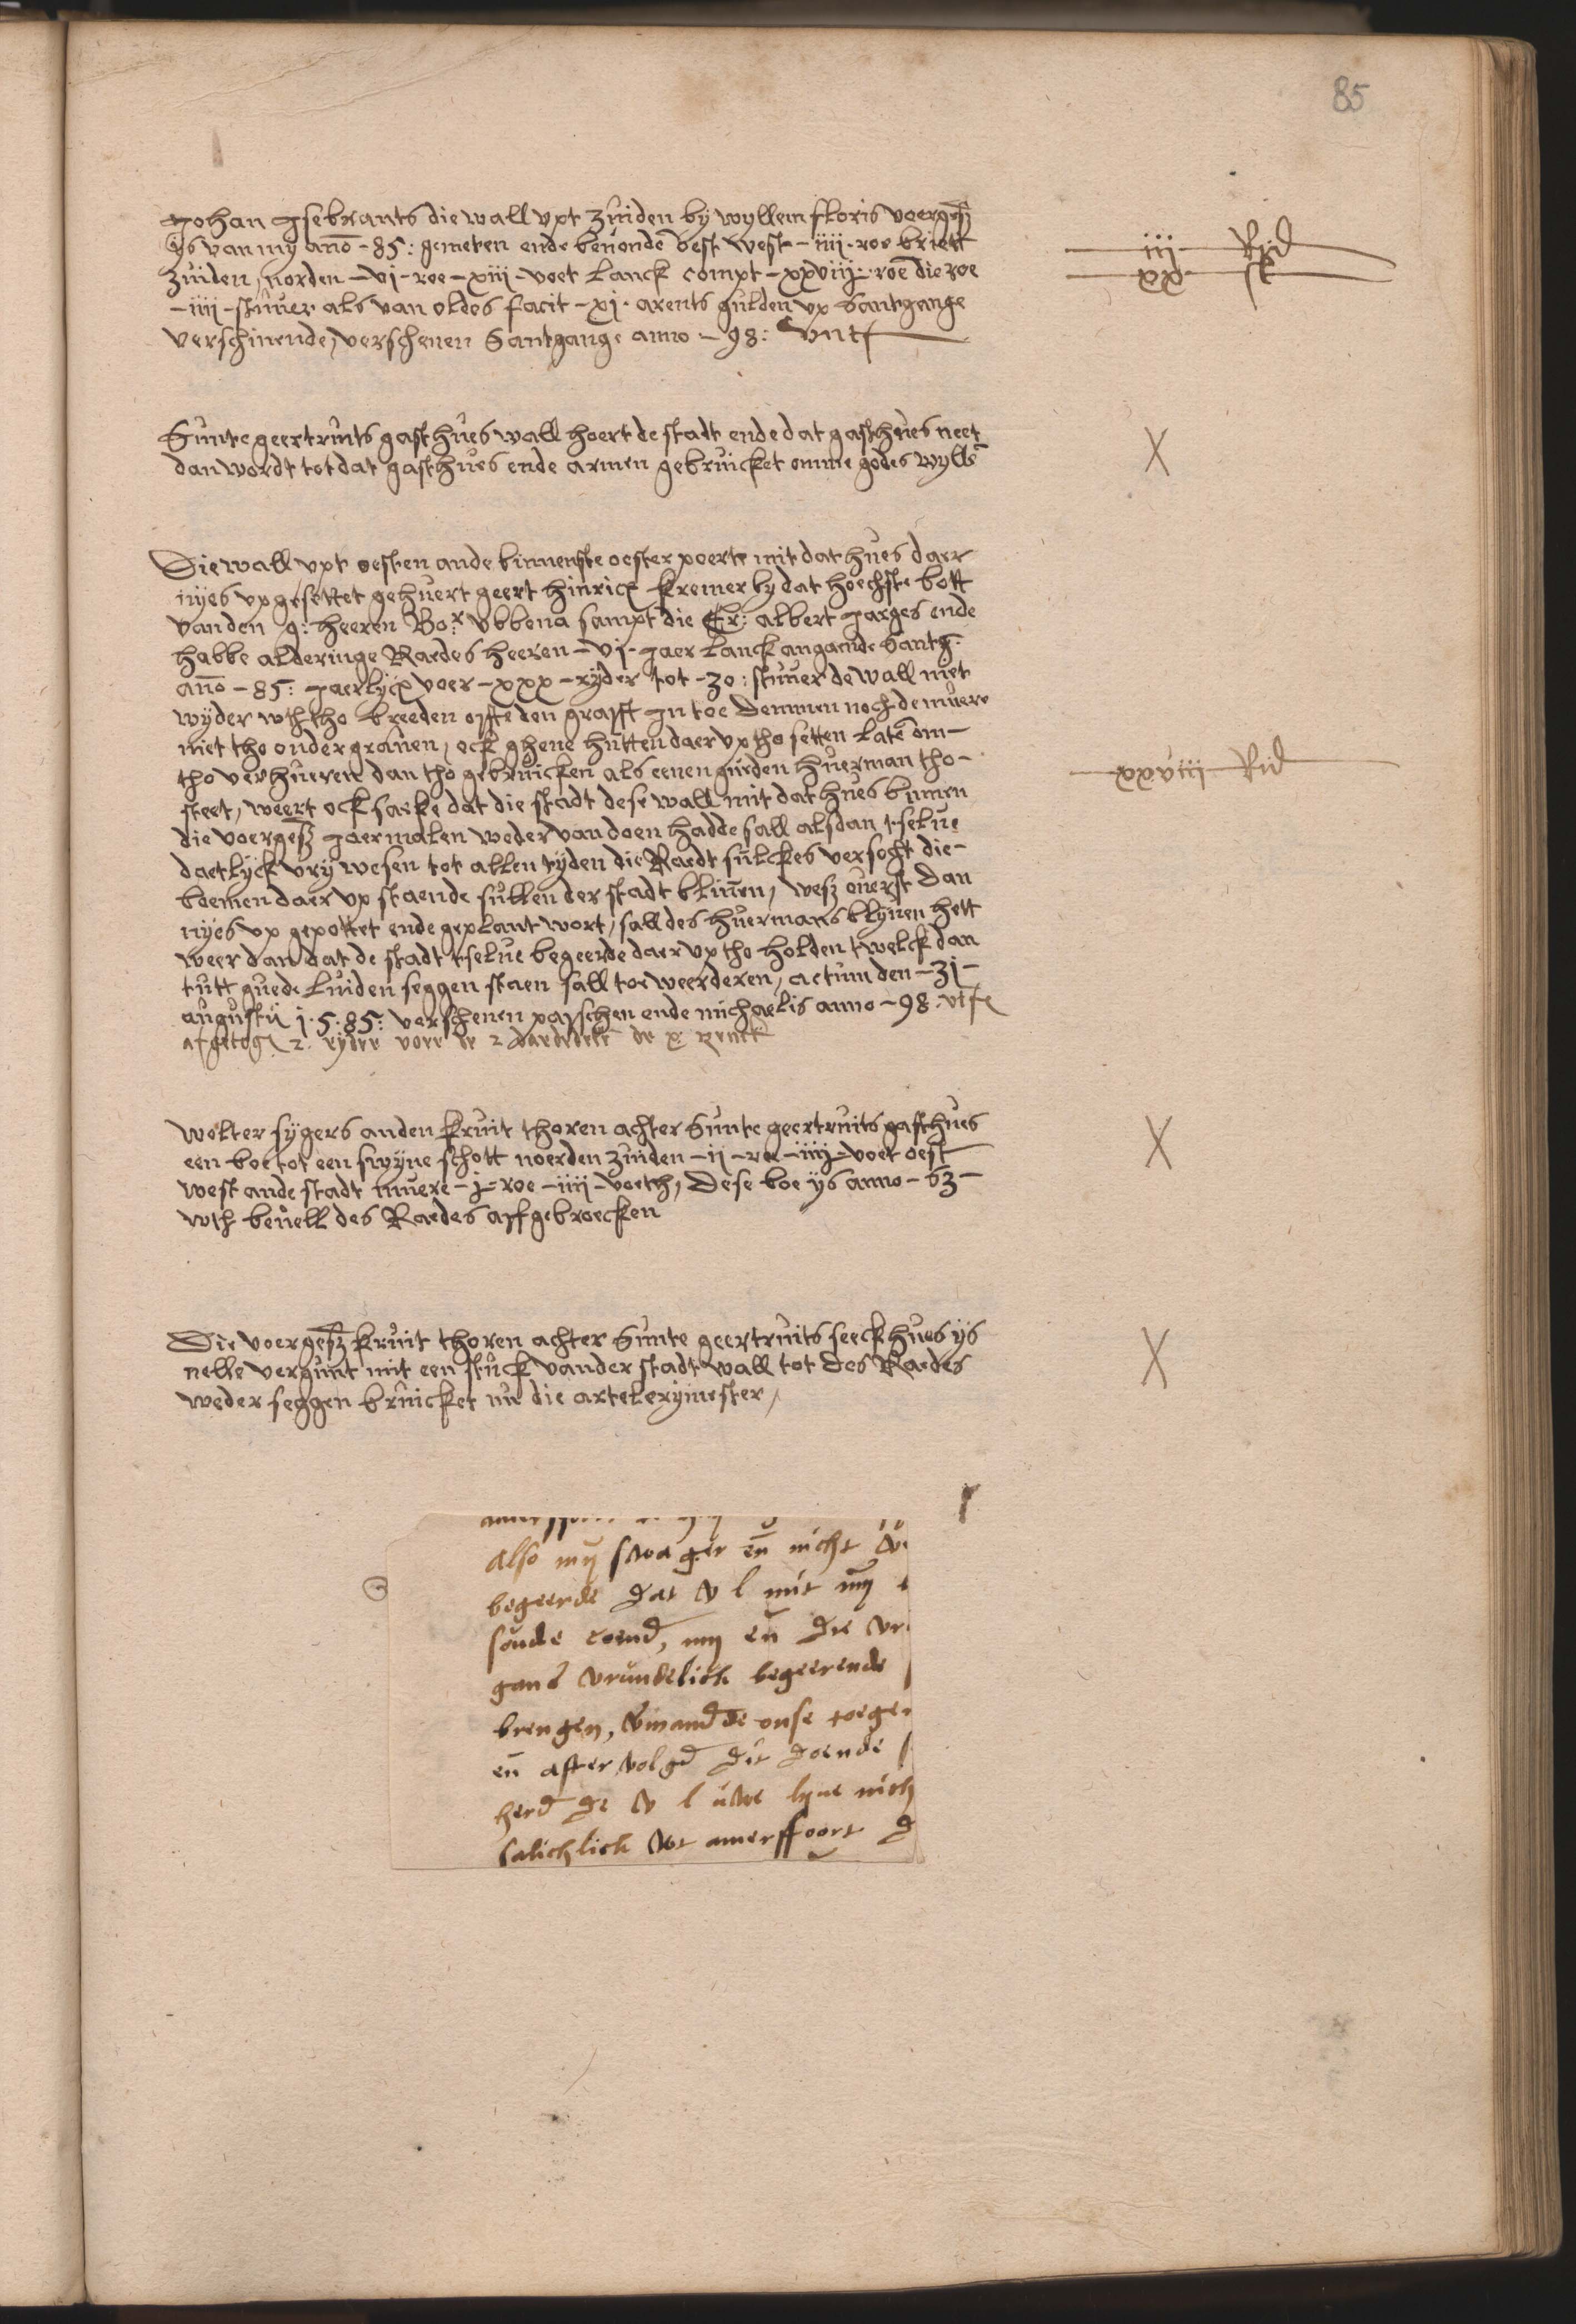 85
Johan Jsebrants die wall vpt zuiden by wyllem floris voergesz
ys van my ano - 85: gemeten ende beuonde oest west - iiii - roe briett
zuiden, norden - vi - roe - xiii - voet lanck compt - xxviij - roe die roe
- iiii - stuuer als van oldes facit - xj - arents gulden vp Santgange
verschinende, verschenen Santgange anno - 98:
iii Rid
xx st
Sunte geertruits gasthues wall hoert de stadt ende dat gasthues neet
dan wordt tot dat gasthues ende armen gebruicket omme godes wylle
X
Die wall vpt oesten ande binnenste oester poerte mit dat hues daer
nyes vp gesettet gehuert geert hinricx kremer by dat hoechste bott
van den g: heeren Bor Vbbena sampt die Er: albert Jarges ende
habbe alderinge Raedes heeren - vj - Jaer lanck angaende Santg.
ano - 85: Jaerlycx voer - xxx - ryder tot - 30: stuuer de wall niet
wyder wth tho breeden offte den grafft in toe demmen noch de muere
niet tho ondergrauen, ock ghene hutten daer vp tho setten late om -
tho verhueren dan tho gebruicken als eenen gueden huerman tho -
steet, weert ock sacke dat die stadt dese wall mit dat hues binnen
die voergesz Jaermalen weder van doen hadde sall alsdan t selue
daetlyck vry wesen tot allen tyden die Raedt sulckes versocht die -
boemen daer vp staende sullen der stadt bliuen, wesz ouerst dan
nyes vp gepottet ende geplant wort, sall des huermans blyuen hett
weer dan dat de stadt t selue begeerde daer vp tho holden twelck dan
tutt guede luiden seggen staen sall toe weerderen, actum den - 31 -
augustii j.5.85: verschenen paischen ende michaelis anno - 98.
2 ryder voer
xxviii Rid
Wolter sygers anden kruit thoren achter Sunte geertruits gasthues
een boe tot een swyne schott noerden zuiden - ii - roe - iiij - voet oest
west ande stadt muere - j - roe - iiii - voeth, Dese boe ys anno - 63 -
wth beuell des Raedes affgebroecken
X
Die voergesz kruit thoren achter Sunte geertruits seeckhues ys
nelle vergunt mit een stuck vander stadt wall tot des Raedes
weder seggen bruicket nu die artelerymester,
X
also my swager en nicht
begeerde dat v l mit my
soude coend, my en die vr
gans vrundelick begeerende
brengen, onse toege
en after volgd dit doende
herd de v l uwe lyue nich
salichlick wt amerssfoort d